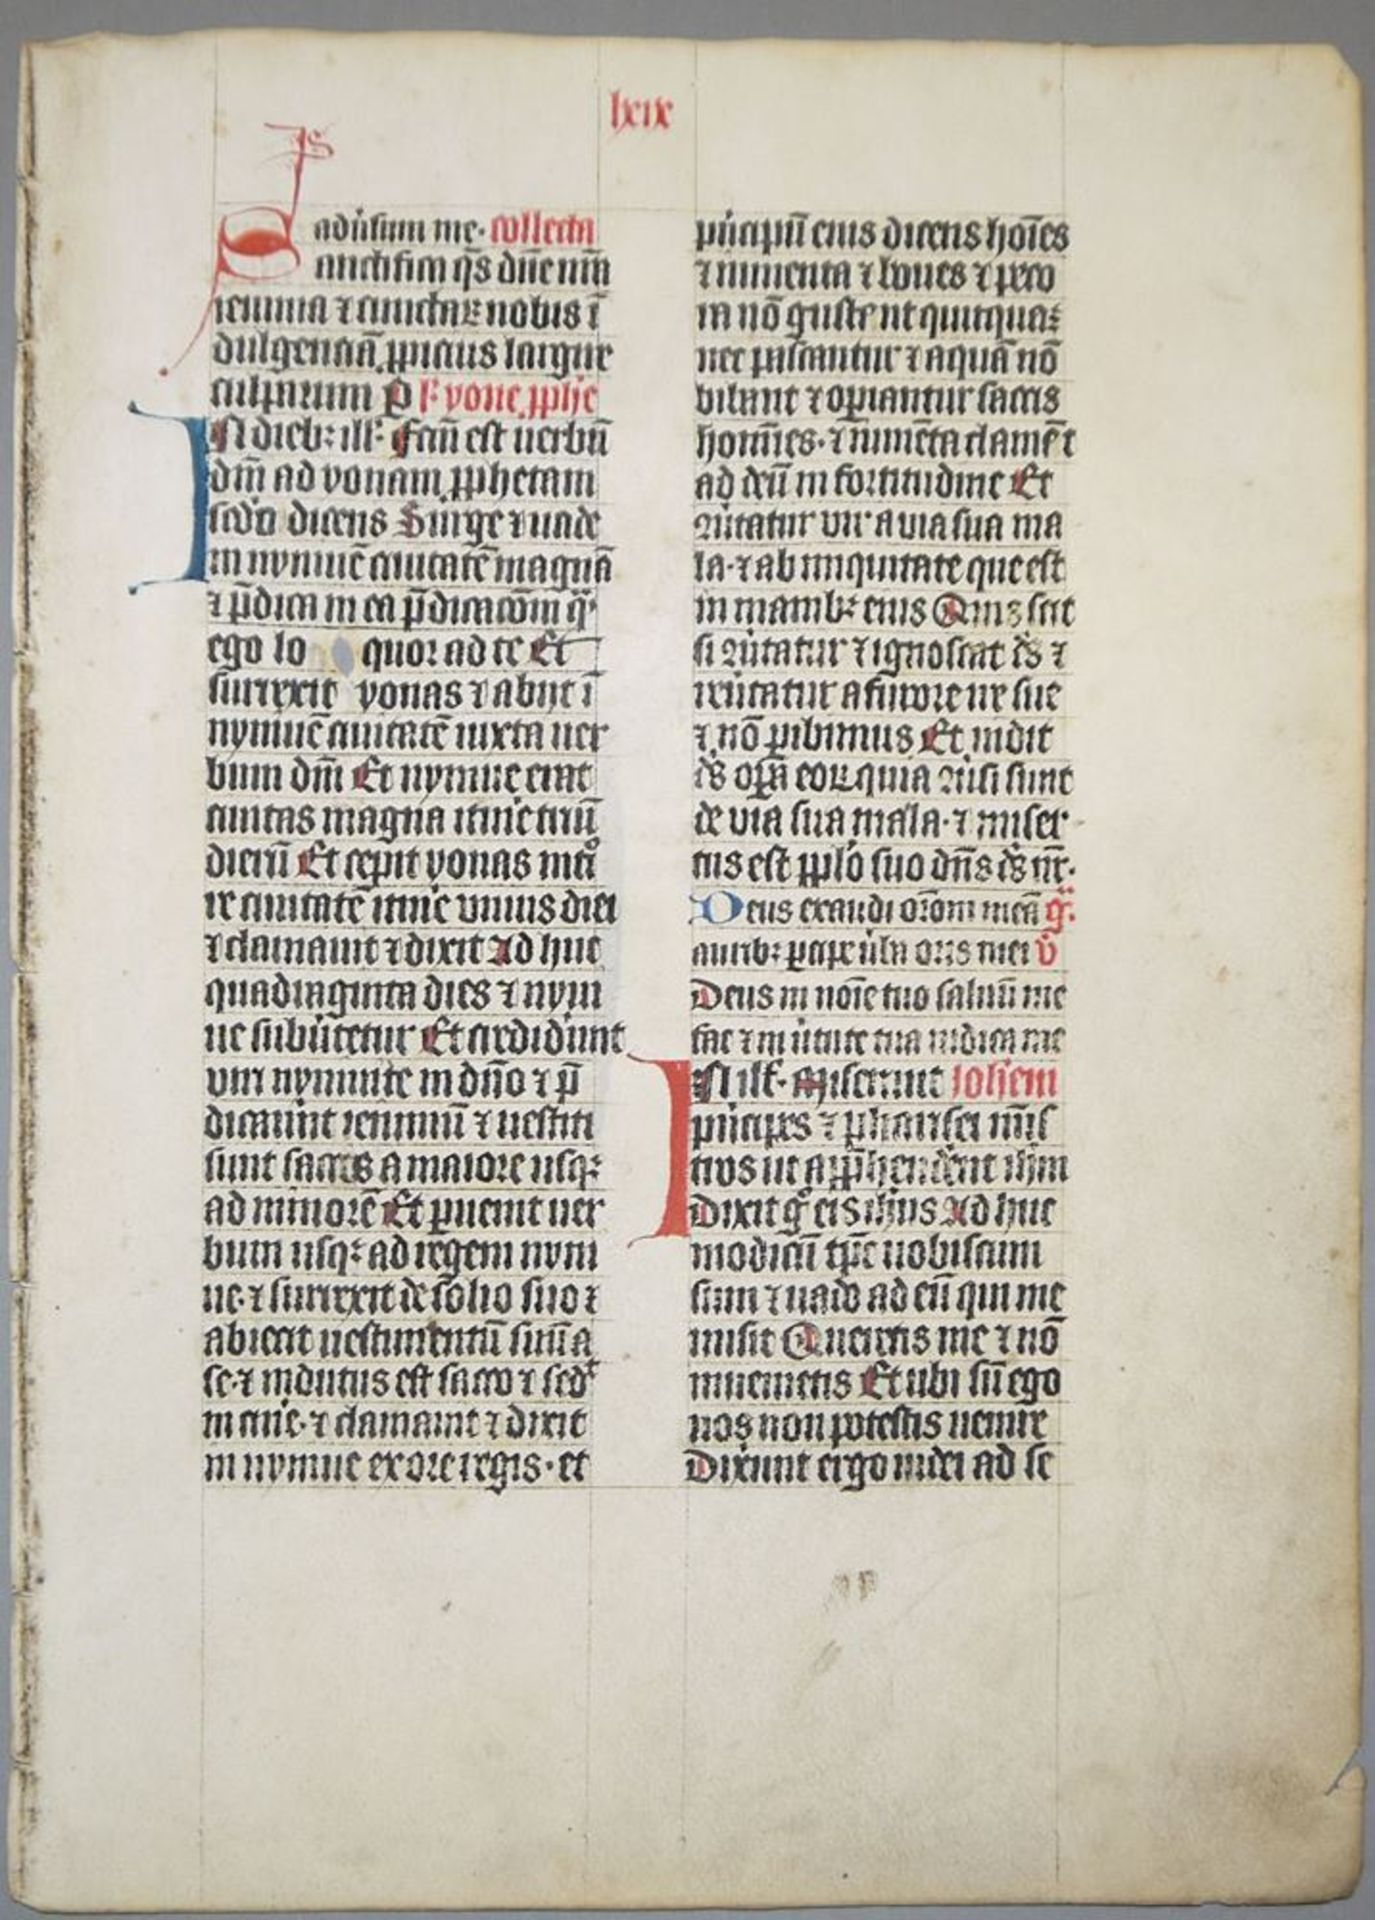 lxix
ps
aduersum me. collecta
Sanctifica q̄s dn̄e nr̄a
ieiunia ⁊ cunctaꝝ nobis ī
dulgenciā ꝓpicius largire
culparum P̄ l̄ yone ꝓphe
IN dieb: ill̄. Fcm̄ est uerbū
dn̄i ad yonam ꝓphetam
scd̄o dicens Surge ⁊ uade
in nyniuē ciuitatē magnā
⁊ p̄dica in ea p̄dicacōm q̄
ego lo quor ad te Et
surrexit yonas ⁊ abiit ī
nyniuē ciuitatē iuxta uer
bum dn̄i Et nyniue erat
ciuitas magna itinē triū
dierū Et cepit yonas int̊
ire ciuitatē itinē unius diei
⁊ clamauit ⁊ dixit Ad huc
quadraginta dies ⁊ nyni
ue subūtetur Et crediderunt
uiri nyniuite in dn̄o ⁊ p̄
dicauūt ieiuniū ⁊ uestiti
sunt saccis a maiore usq:
ad minorē Et ꝑuenit uer
bum usq: ad regem nyni
ue. ⁊ surrexit de solio suo ⁊
abiecit uestimentū suū a
se. ⁊ indutus est sacco ⁊ sedt
in cine. ⁊ clamauit ⁊ dixit
in nyniue ex ore regis. et
principū eius dicens hoīes
⁊ iumenta ⁊ boues ⁊ peco
ra nō gustent quicquaꝫ
nec pascantur ⁊ aquā nō
bibant ⁊ operiantur saccis
homīes. ⁊ iumēta clamēt
ad deū in fortitudine Et
ꝯūtatur uir a uia sua ma
la. ⁊ ab iniquitate que est
in manib: eius Quis scit
si ꝯūtatur ⁊ ignoscat ds̄ ⁊
reūtatur a furore ire sue
⁊ nō ꝑibimus Et uidit
ds̄ oꝑa eoꝝ quia ꝯūsi sunt
de uia sua mala. ⁊ miser
tus est ꝓplo suo dn̄s ds̄ nr̄.
Deus exaudi orōm meā gͣ.
aurib: ꝑcipe ūba oris mei v̄
Deus in noīe tuo saluū me
fac ⁊ in ūtute tua iudica me
IN ill̄. Miserunt Iohem
prīcipes ⁊ pharisei mīs
tros ut apphenderent ihm
Dixit gͦ eis ihus Ad huc
modicū tp̄e uobiscum
sum ⁊ uado ad eū qui me
misit Queretis me ⁊ nō
inuenietis Et ubi sū ego
uos non potestis uenire
Dixerunt ergo iudei ad se